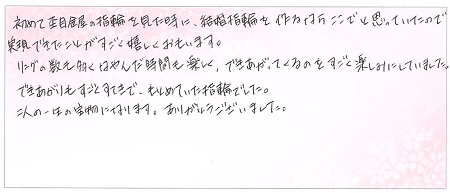 初めて杢目金屋の指輪を見た時に、結婚指輪を作るならここでと思っていたので
実現できたことがすごく嬉しくおもいます。
リングの数も多くなやんだ時間も楽しく、できあがってくるのをすごく楽しみにしていました。
できあがりもすごくすてきで、もとめていた指輪でした。
二人の一生の宝物になります。ありがとうございました。